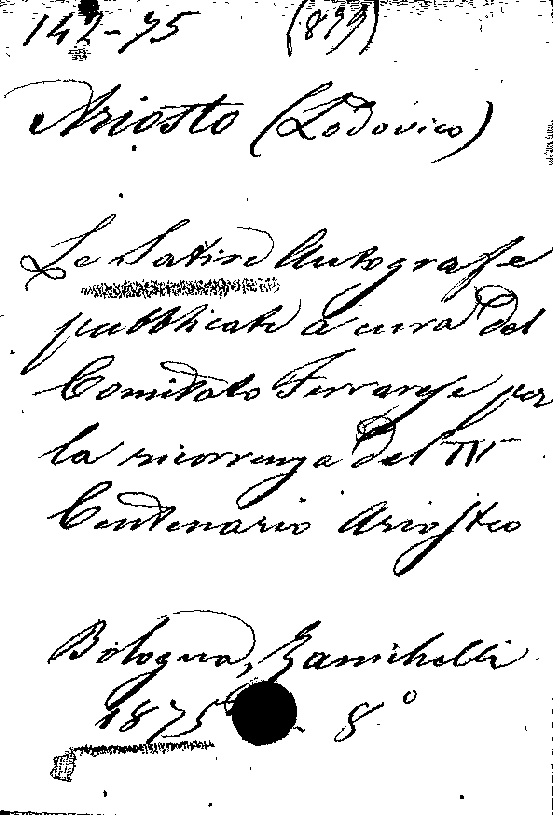 142-75 (899)
Ariosto (Lodovico)
Le Satire Autografe
pubblicate a cura del
Comitato Ferrarese per
la ricorrenza del IV
Centenario Ariosteo
Bologna, Zanichelli
1875. 8°